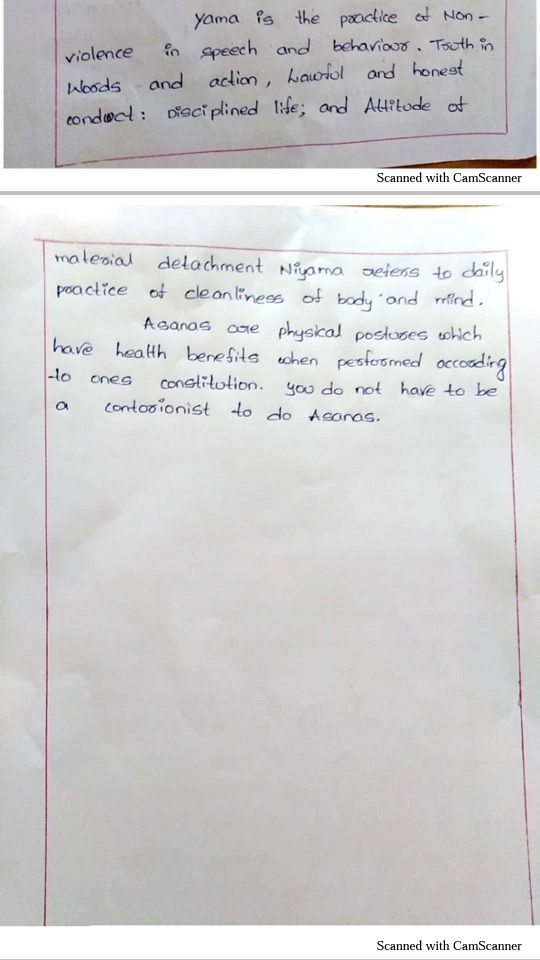 Yama is the practice of Non-
violence in speech and behaviour. Truth in
Words and action, Lawful and honest
conduct: Disciplined life; and Attitude of
Scanned with CamScanner
material detachment Niyama refers to daily
practice of cleanliness of body and mind.
Asanas are physical postures which
have health benefits when performed according
to ones constitution. You do not have to be
a contorionist to do Asanas.
Scanned with CamScanner